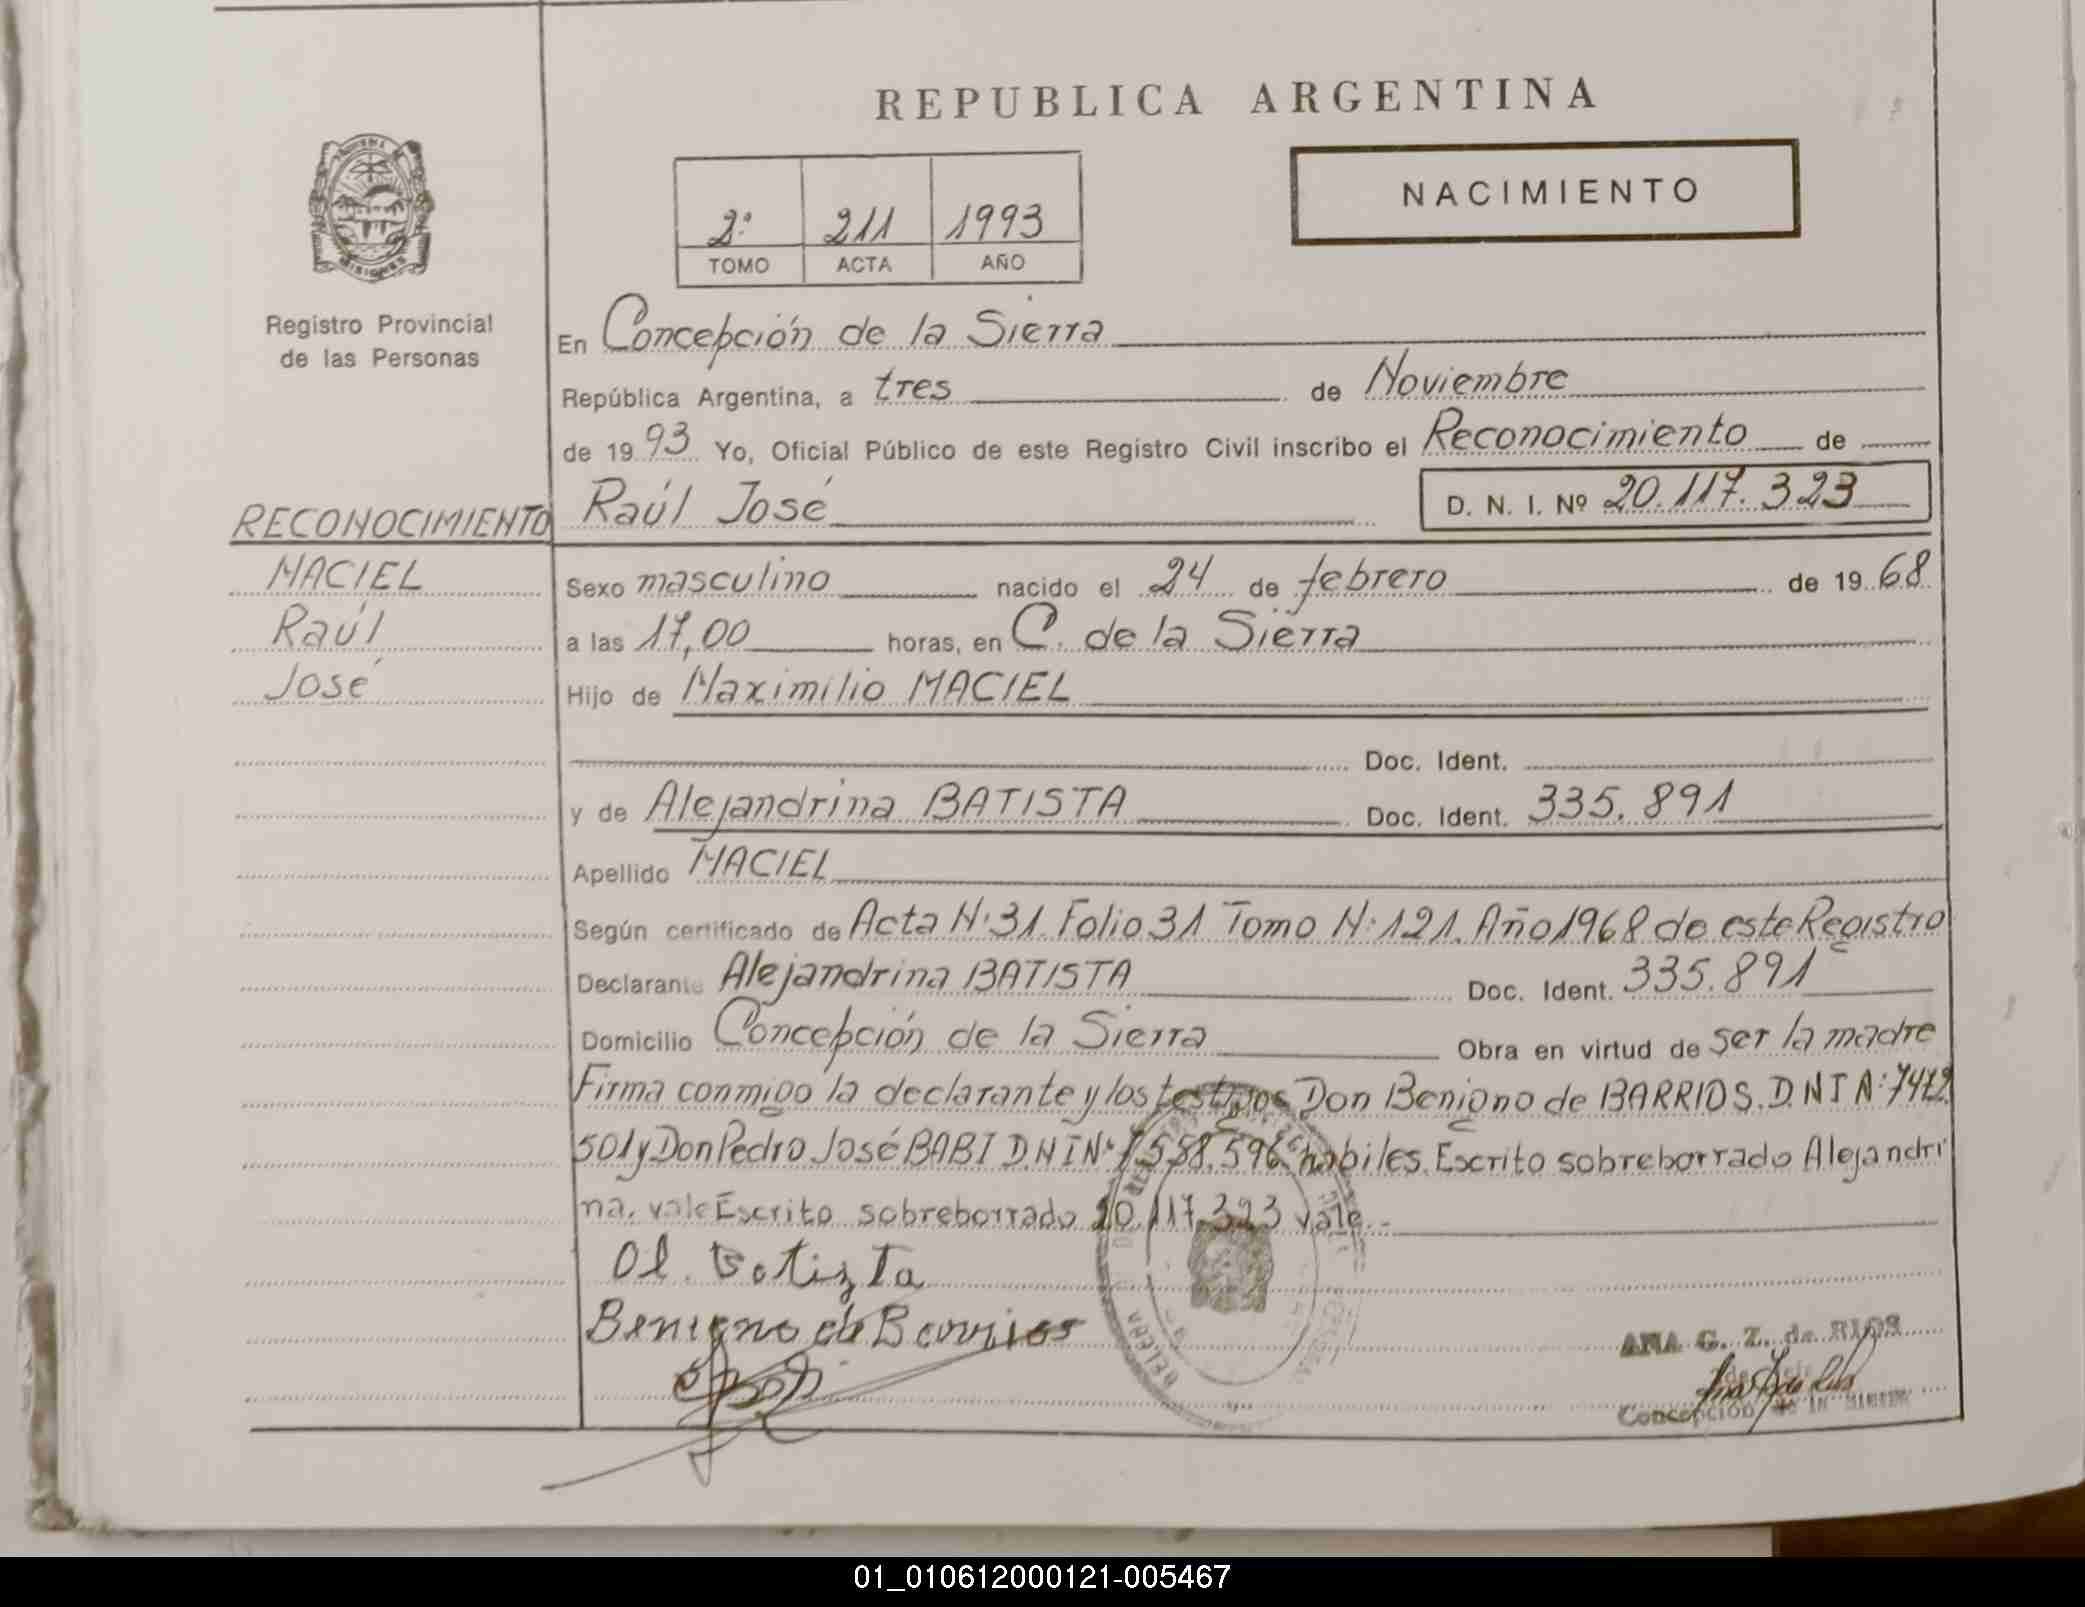 REPUBLICA ARGENTINA
NACIMIENTO
2º 211 1993
TOMO ACTA AÑO
MISIONES
Registro Provincial
de las Personas
En Concepción de la Sierra
República Argentina, a tres de Noviembre
de 1993 Yo, Oficial Público de este Registro Civil inscribo el Reconocimiento de
Raúl José D. N. I. Nº 20.117.323
RECONOCIMIENTO
MACIEL
Raúl
José
Sexo masculino nacido el 24 de febrero de 1968
a las 17,00 horas, en C. de la Sierra
Hijo de Maximilio MACIEL
Doc. Ident.
y de Alejandrina BATISTA Doc. Ident. 335.891
Apellido MACIEL
Según certificado de Acta Nº 31 Folio 31 Tomo Nº 121. Año 1968 de este Registro
Declarante Alejandrina BATISTA Doc. Ident. 335.891
Domicilio Concepción de la Sierra Obra en virtud de ser la madre
Firma conmigo la declarante y los testigos Don Benigno de BARRIOS. D.N.I Nº
501 y Don Pedro José BABI D.N.I Nº 7.558.596 habiles. Escrito sobreborrado Alejandri
na. vale Escrito sobreborrado 20.117.323 vale.-
Benigno de Barrios
ANA G. Z. de RIOS
Concepción de la Sierra
01_010612000121-005467